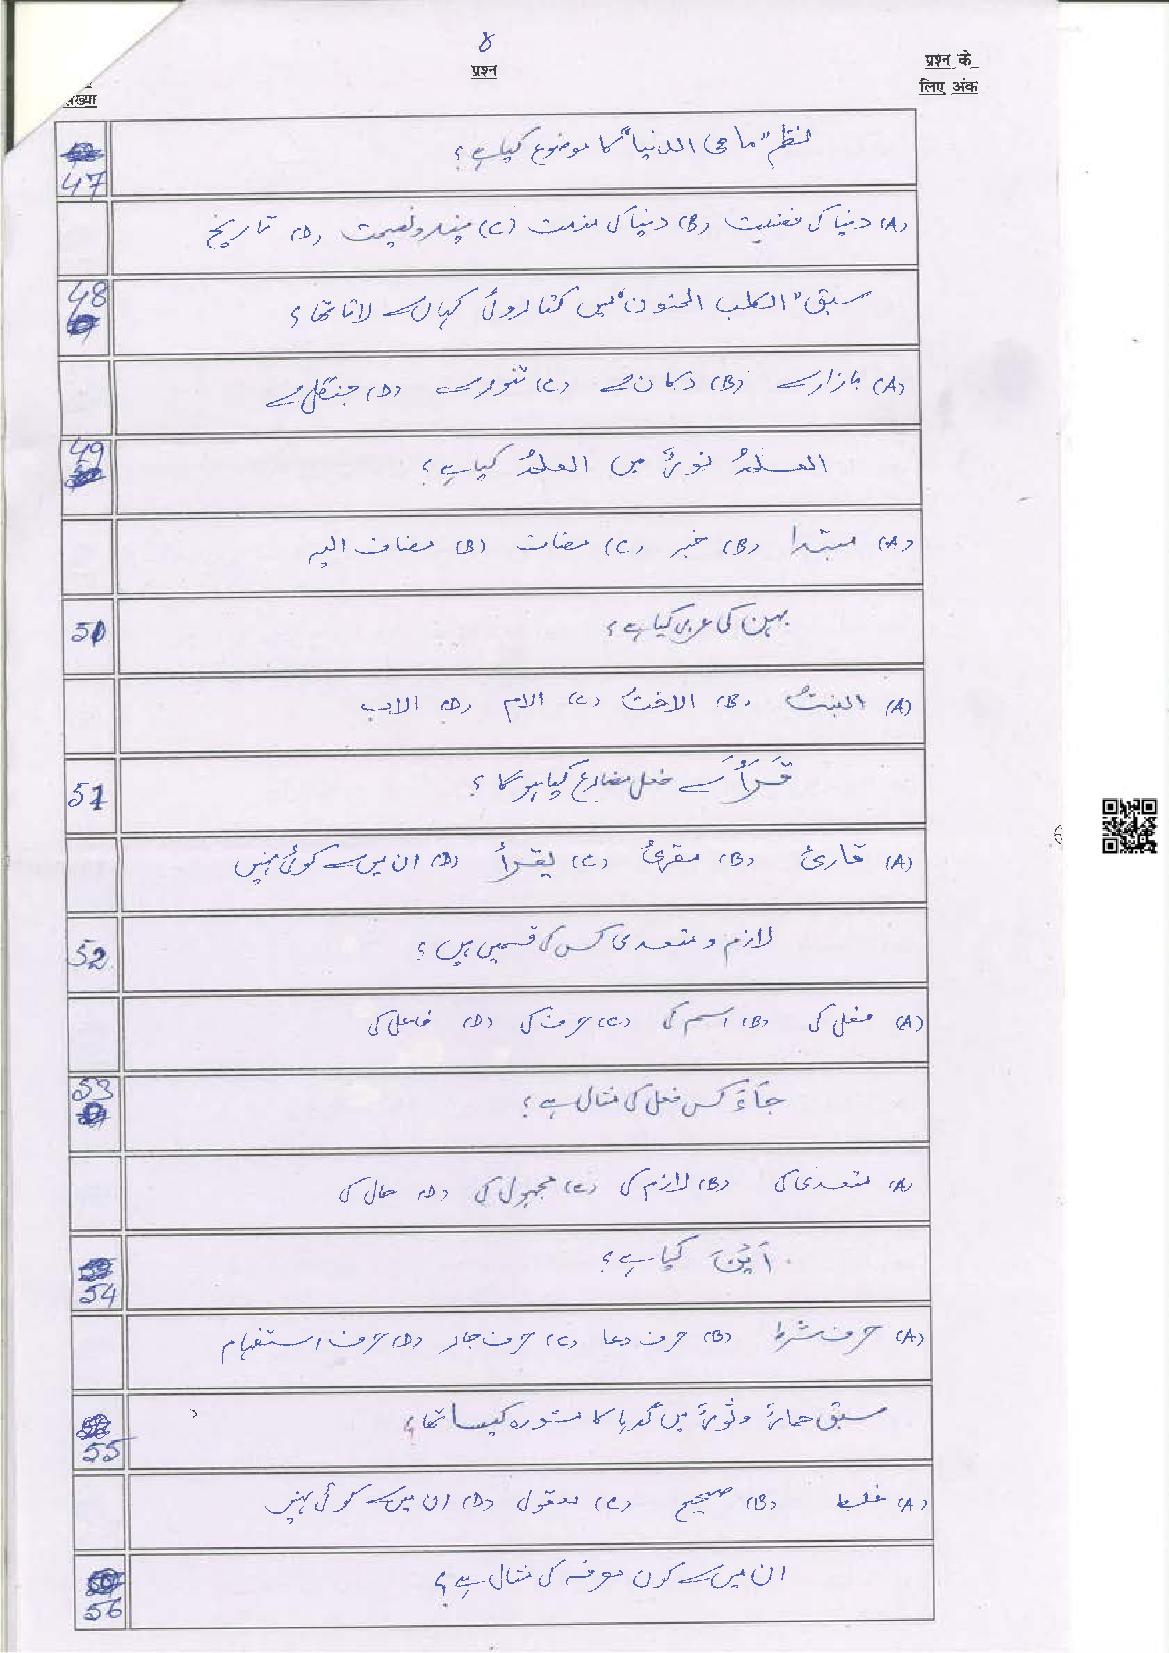 8
प्रश्न
प्रश्न के
लिए अंक
संख्या
47 نظم "ما ھی الدنیا" کا موضوع کیا ہے؟
(A) دنیا کی فضیلت (B) دنیا کی مذمت (C) پندو نصیحت (D) تاریخ
48 سبق "الکلب الحنون" میں کتا روٹی کہاں سے لاتا تھا؟
(A) بازار سے (B) دکان سے (C) تنور سے (D) جنگل سے
49 العلمُ نورٌ میں العلمُ کیا ہے؟
(A) مبتدا (B) خبر (C) مضاف (D) مضاف الیہ
50 بہن کی عربی کیا ہے؟
(A) البنتُ (B) الاختُ (C) الام (D) الاب
51 قَرَأَ سے فعل مضارع کیا ہوگا؟
(A) قارئ (B) مقرئ (C) یقرأ (D) ان میں سے کوئی نہیں
52 لازم و متعدی کس کی قسمیں ہیں؟
(A) فعل کی (B) اسم کی (C) حرف کی (D) فاعل کی
53 جَاءَ کس فعل کی مثال ہے؟
(A) متعدی کی (B) لازم کی (C) مجہول کی (D) حال کی
54 اَیْنَ کیا ہے؟
(A) حرف شرط (B) حرف دعا (C) حرف جار (D) حرف استفہام
55 سبق حمارٌ و ثورٌ میں گدہا کا مشورہ کیسا تھا؟
(A) غلط (B) صحیح (C) معقول (D) ان میں سے کوئی نہیں
56 ان میں سے کون معرفہ کی مثال ہے؟